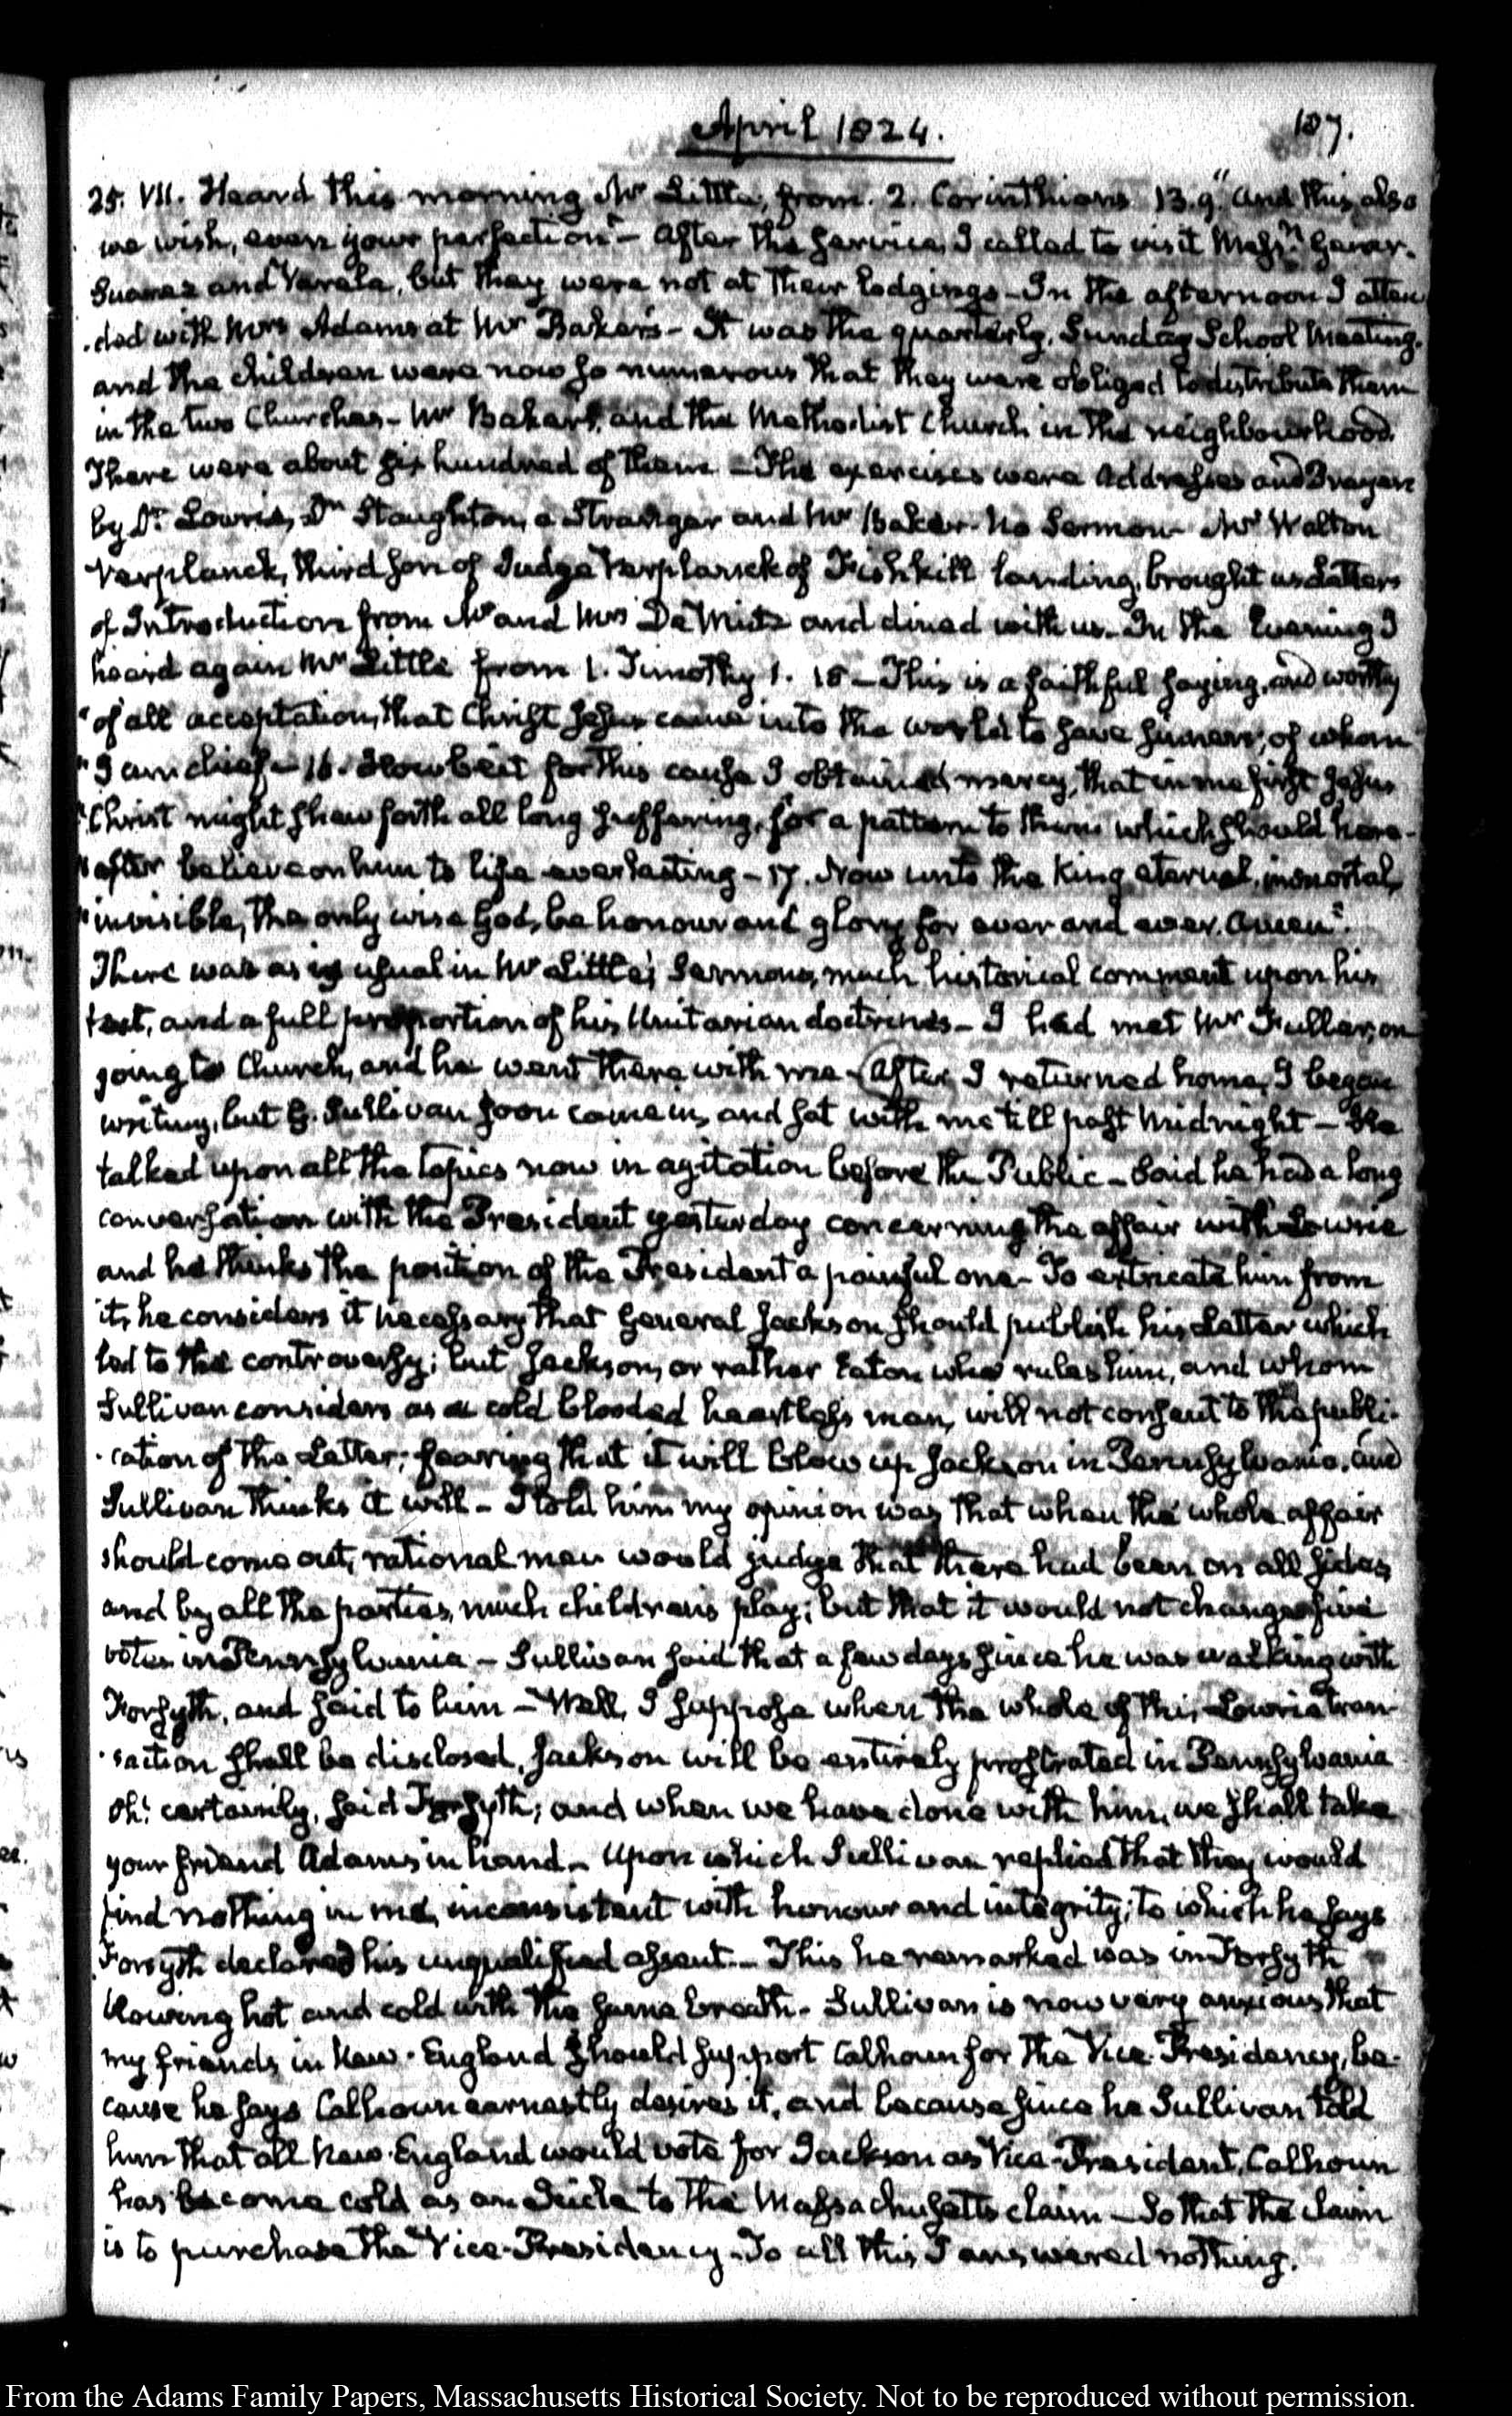 April 1824.
107.
25. VII. Heard this morning Mr Little, from. 2. Corinthians 13.9. "and this also
we wish, even your perfection"- After the service, I called to visit Messrs
Suarez and Varela, but they were not at their lodgings - In the afternoon I atten
-ded with Mrs Adams at Mr Baker's - It was the quarterly, Sunday School Meeting.
and the children were now so numerous that they were obliged to distribute them
in the two Churches - Mr Baker's, and the Methodist Church in the neighbourhood.
There were about six hundred of them - The exercises were Addresses and Prayers
by Dr Lowrie, Dr Staughton, a Stranger and Mr Baker. No Sermon - Mr Walton
Verplanck, third son of Judge Verplanck of Fishkill landing, brought us Letters
of Introduction from Mr and Mrs De Wint and dined with us. In the Evening I
heard again Mr Little from 1. Timothy 1. 15 - This is a faithful saying, and worthy
"of all acceptation, that Christ Jesus came into the world to save sinners, of whom
"I am chief - 16. Howbeit for this cause I obtained mercy, that in me first Jesus
"Christ might shew forth all long suffering, for a pattern to them which should here-
"after believe on him to life everlasting - 17. Now unto the King eternal, immortal,
"invisible, the only wise God, be honour and glory for ever and ever. Amen".
There was as is usual in Mr Little's Sermons, much historical comment upon his
text, and a full proportion of his Unitarian doctrines - I had met Mr Fuller, on
going to Church, and he went there with me - After I returned home, I began
writing, but G. Sullivan soon came in, and sat with me till past Midnight - He
talked upon all the topics now in agitation before the Public - Said he had a long
conversation with the President yesterday concerning the affair with Lowrie
and he thinks the position of the President a painful one - To extricate him from
it, he considers it necessary that General Jackson should publish his Letter which
led to the controversy; but Jackson, or rather Eaton who rules him, and whom
Sullivan considers as a cold blooded heartless man, will not consent to the publi-
-cation of the Letter; fearing that it will blow up Jackson in Pennsylvania. and
Sullivan thinks it will - I told him my opinion was that when the whole affair
should come out, rational men would judge that there had been on all sides,
and by all the parties, much children's play; but that it would not change five
votes in Pennsylvania - Sullivan said that a few days since he was walking with
Forsyth, and said to him - Well, I suppose when the whole of this Lowrie tran-
-saction shall be disclosed, Jackson will be entirely prostrated in Pennsylvania
Oh! certainly, said Forsyth; and when we have done with him, we shall take
your friend Adams in hand - Upon which Sullivan replied that they would
find nothing in me, inconsistent with honour and integrity; to which he says
Forsyth declared his unqualified assent. - This he remarked was in Forsyth
blowing hot and cold with the same breath. Sullivan is now very anxious that
my friends in New-England should support Calhoun for the Vice-Presidency, be-
cause he says Calhoun earnestly desires it, and because since he Sullivan told
him that all New-England would vote for Jackson as Vice-President, Calhoun
has become cold as an Icicle to the Massachusetts claim - So that the claim
is to purchase the Vice-Presidency - To all this I answered nothing.
From the Adams Family Papers, Massachusetts Historical Society. Not to be reproduced without permission.